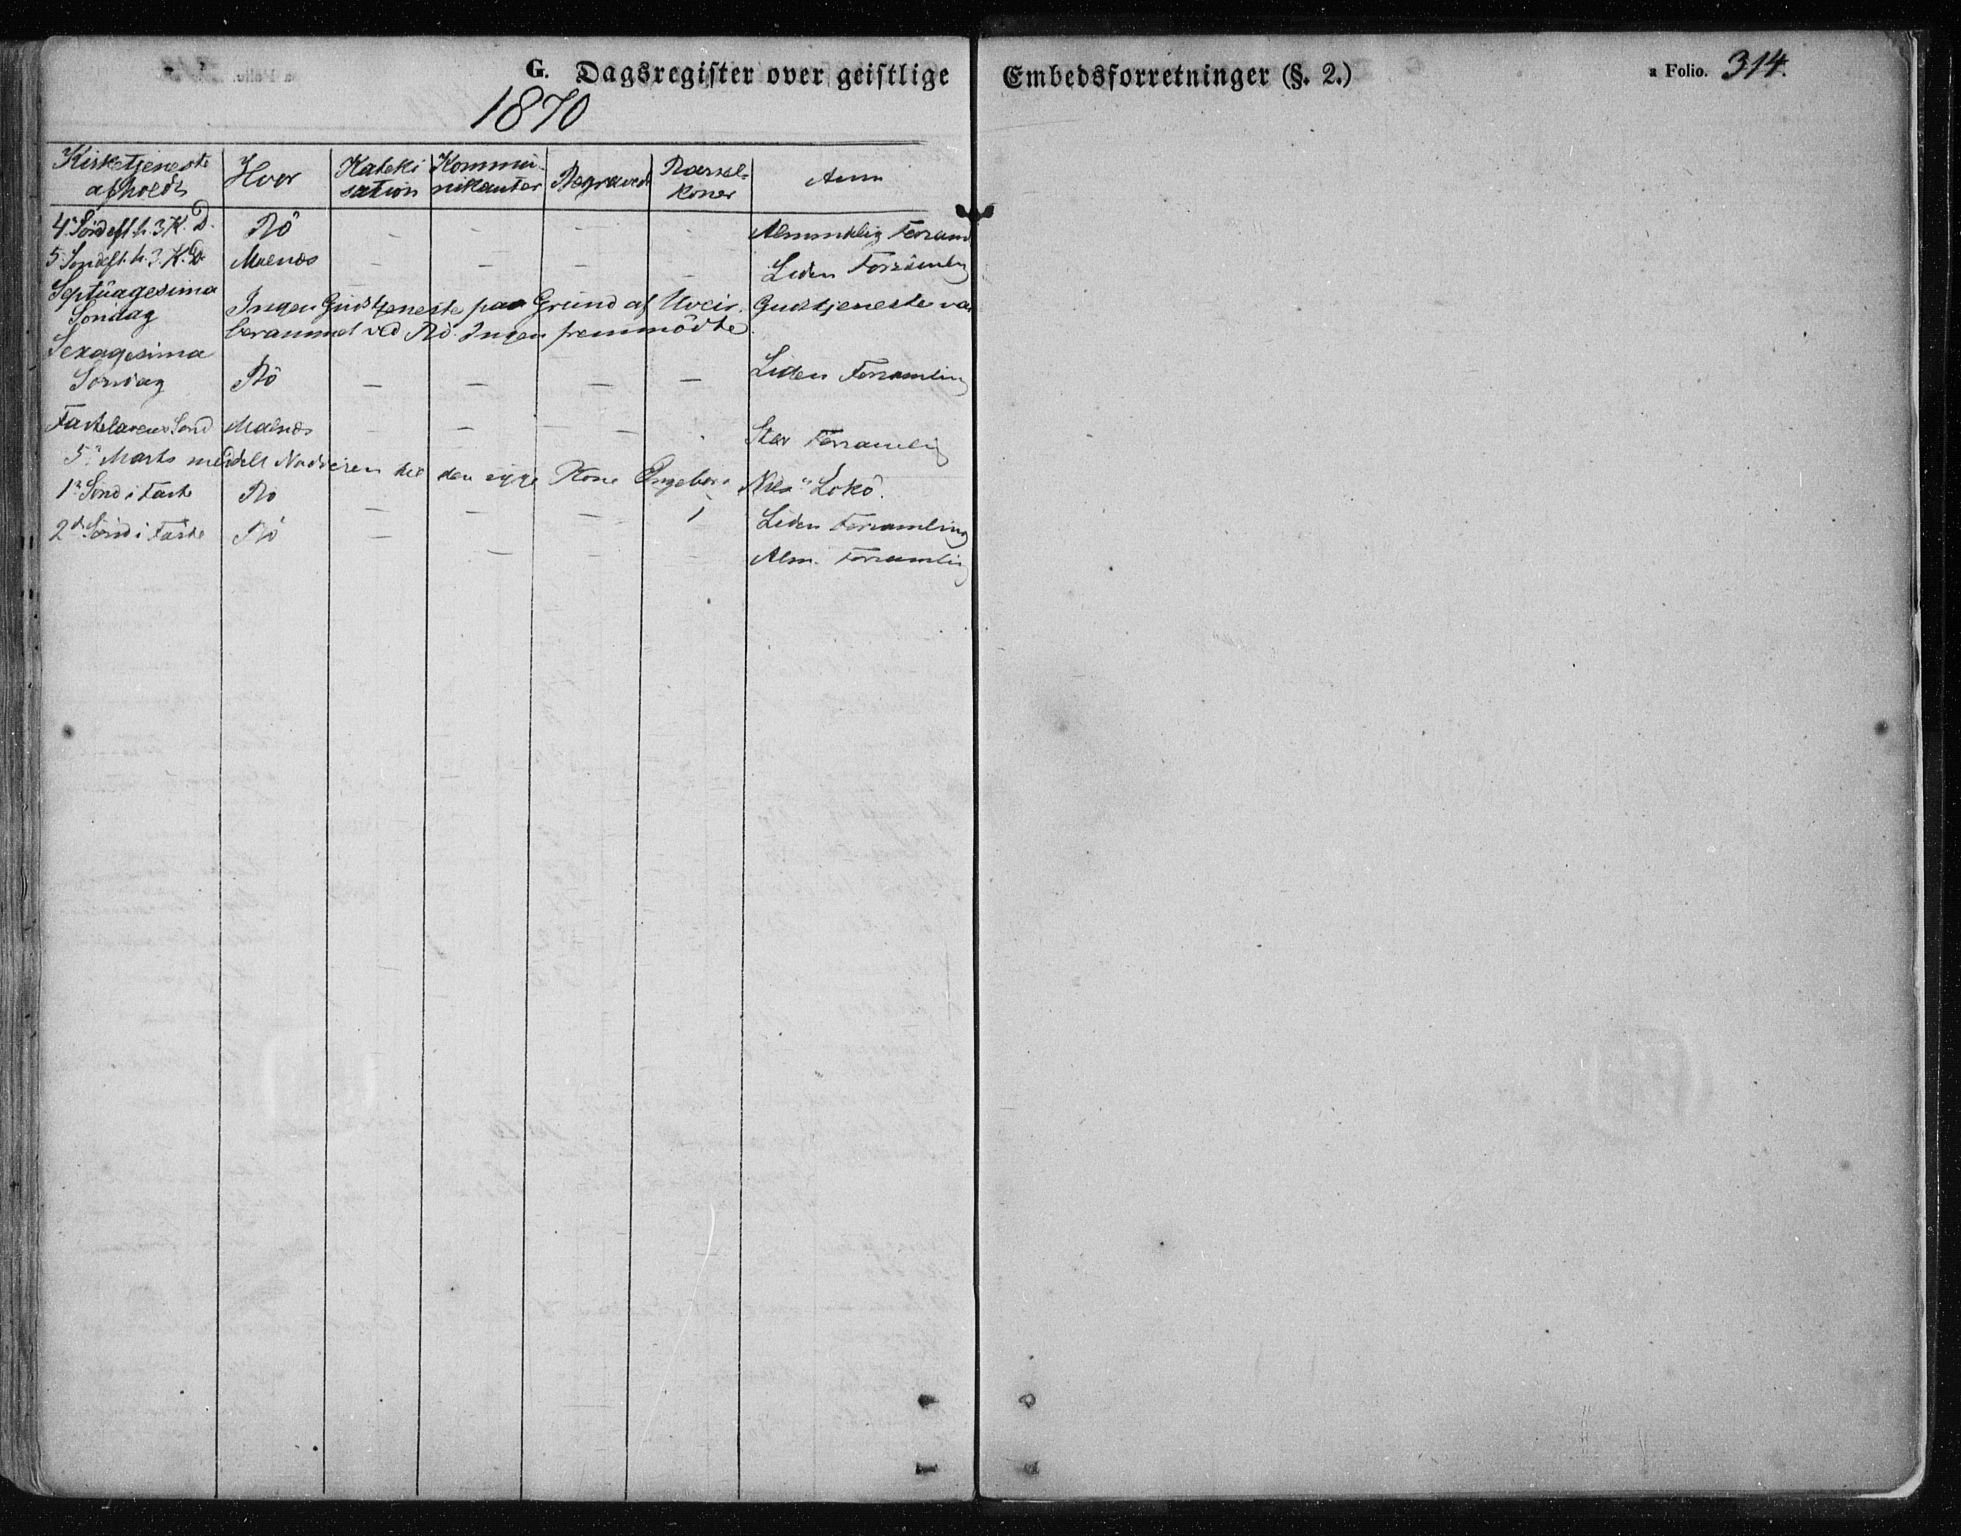 G. Dagsregister over geistlige Embedsforretninger (§. 2.) a Folio. 314.
1870
Kirketjeneste afholdt | Hvor | Kateki sation | Kommu- nikanter | Begravede | Barsel- koner | Anm
4. Sönd eft. h. 3 K. D. | Rö | – | – | – | - | Almindelig Forsaml
5. Sönd eft. h. 3. K. D. | Melnæs | – | – | – | – | Liden Forsamling
Septuagesima
Söndag | Ingen Gudstjeneste paa Grund af Uveir. Gudstjeneste var
berammet ved Rö. Ingen fremmödte.
Sexagesima
Söndag | Rö | – | – | – | – | Liden Forsamling
Fastelavens Sönd | Melnæs | – | – | – | - | Stor Forsamling
5. Marts meddelt Nadveren til den syge Kone Ingebor Nils
1 Sönd i Faste | Rö | – | – | – | 1 | Liden Forsamling
2 Sönd i Faste | Rö | – | – | – | – | Alm. Forsamling